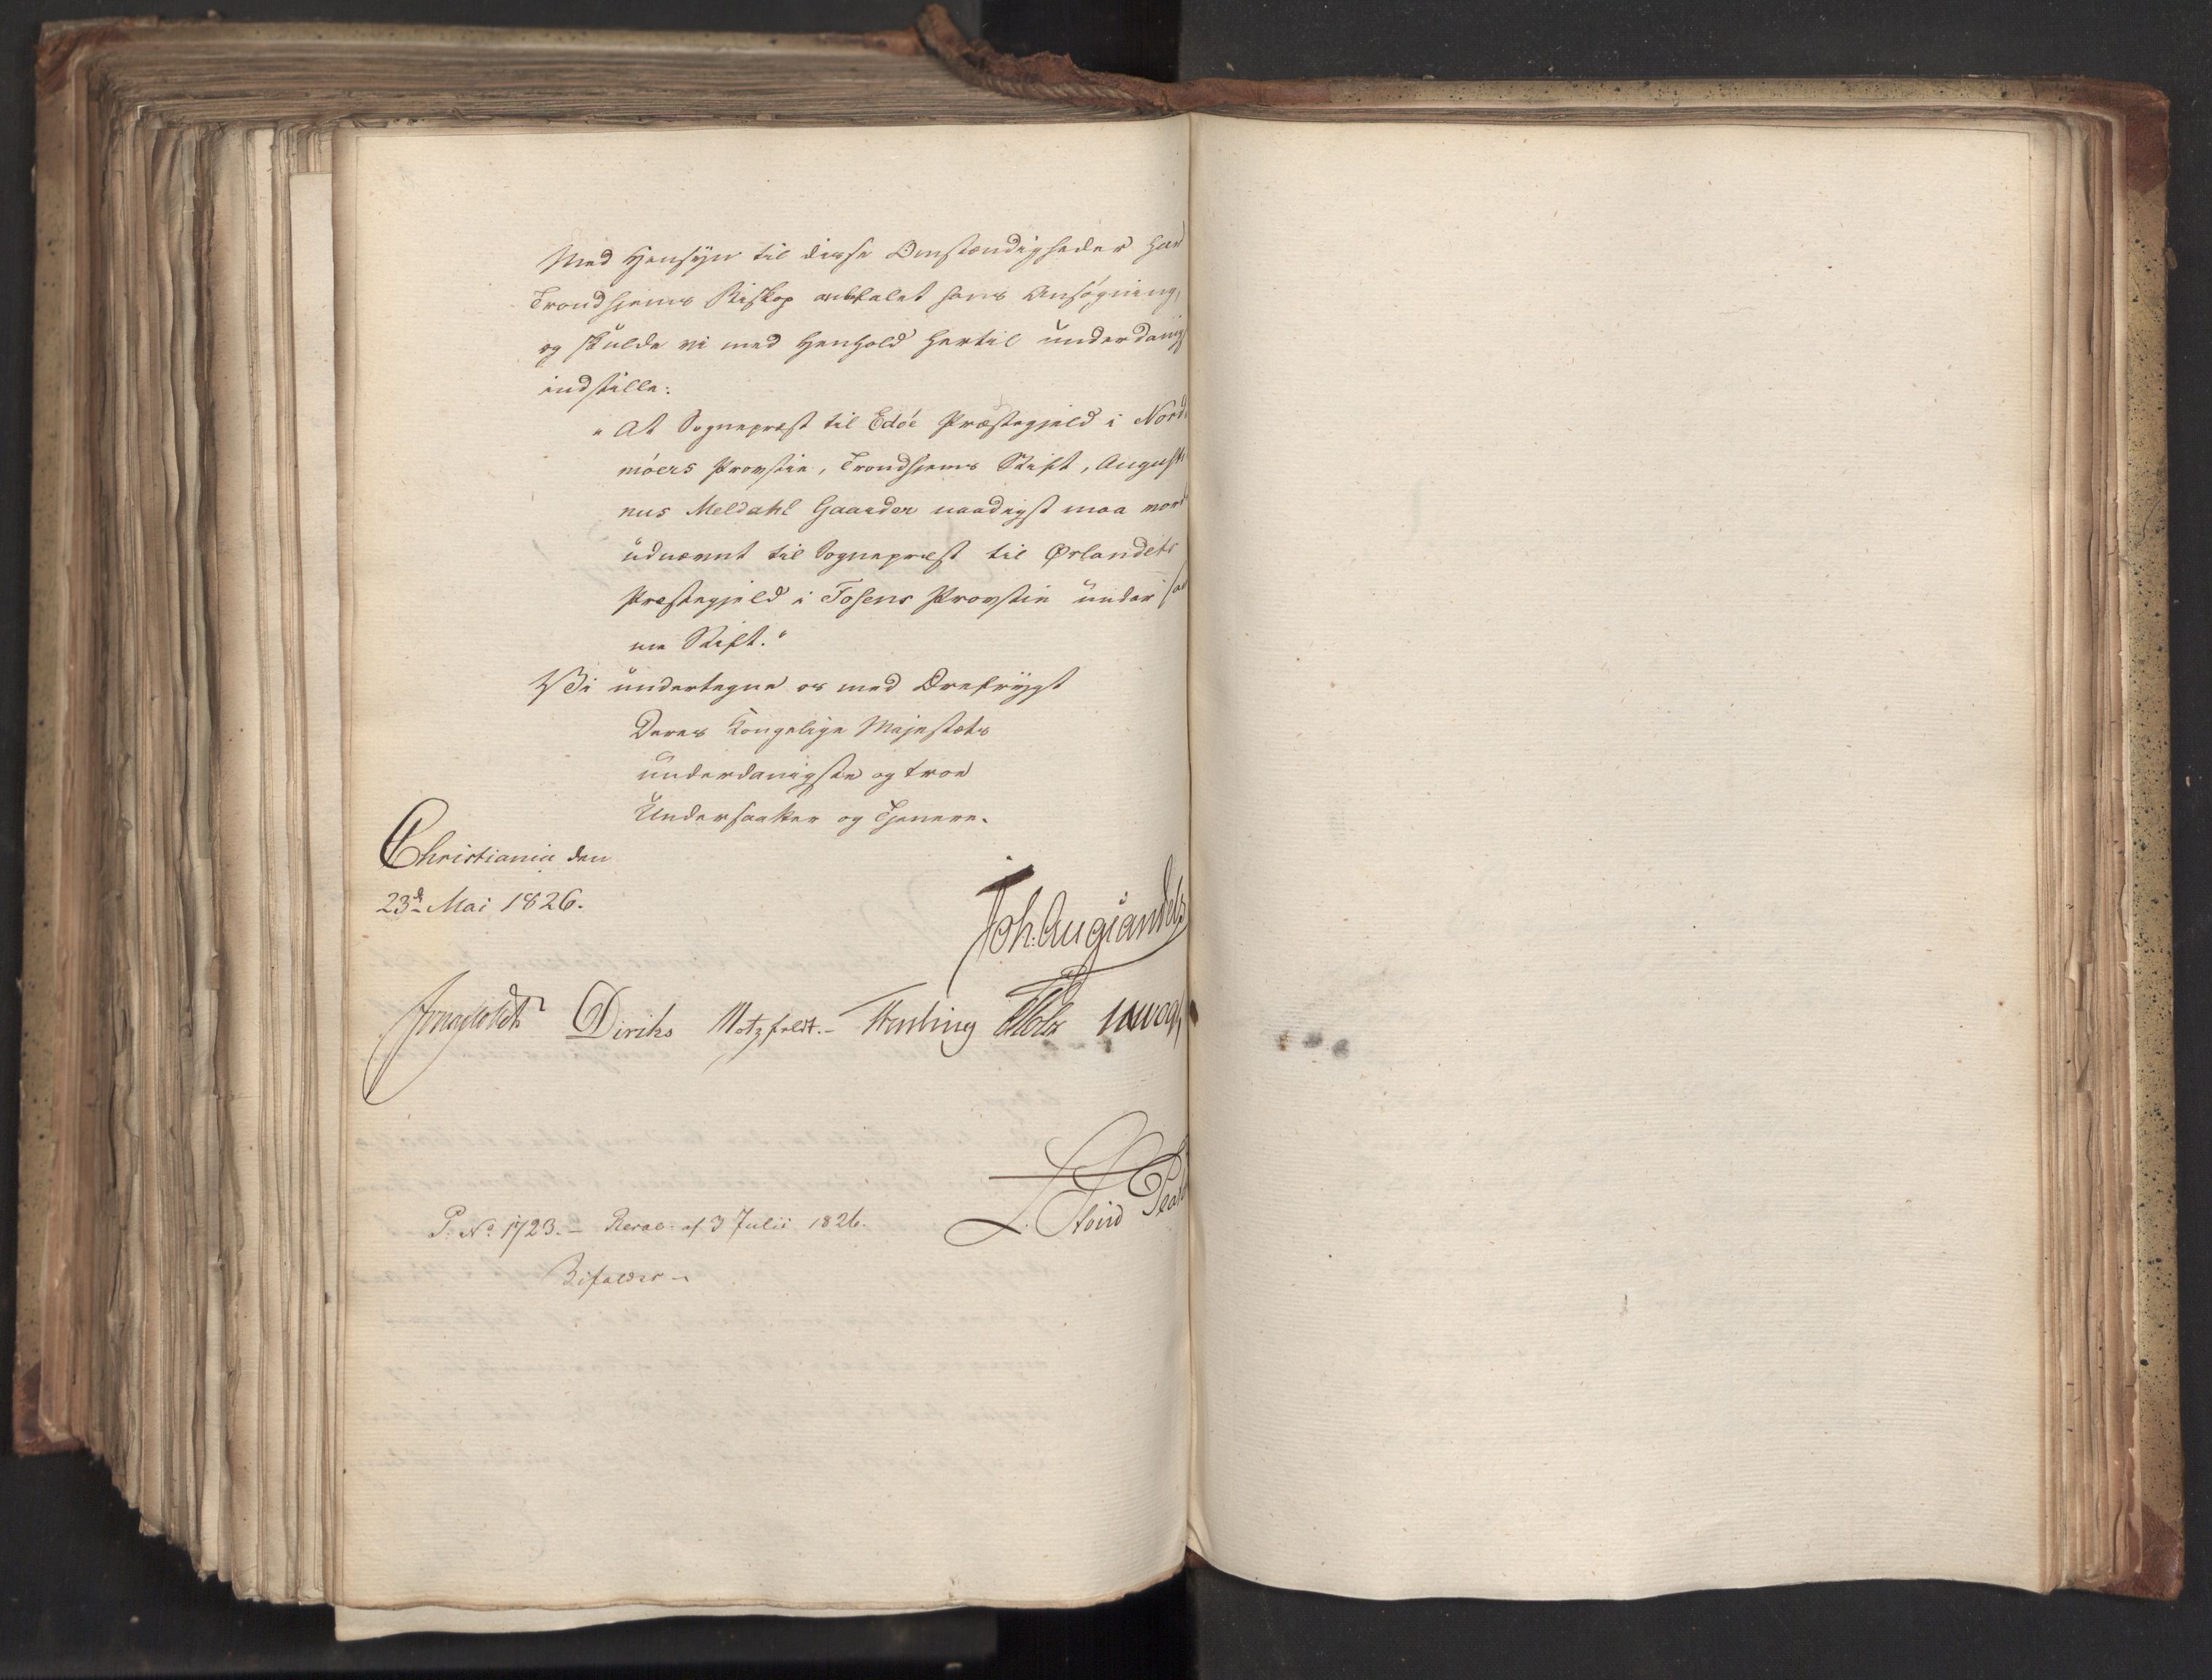 Med Hensyn til disse Omstændigheder har
Trondhjems Biskop anbefalet hans Ansøgning,
og skulde vi med Henhold hertil underdanigst
indstille:
"At Sognepræst til Edöe Præstegjeld i Nord-
möers Provstie, Trondhjems Stift, Augusti-
nus Meldahl Gaarder naadigst maa vorde
udnævnt til Sognepræst til Ørlandets
Præstegjeld i Fosens Provstie under sam-
me Stift."
Vi undertegne os med Ærefrygt
Deres Kongelige Majestæts
underdanigste og troe
Undersaatter og Tjenere.
Christiania den
23de Mai 1826.
Joh. Aug Sandels
Diriks Motzfeldt.
P. No 1723. – Resol. af 3 Julii 1826.
Bifaldes –